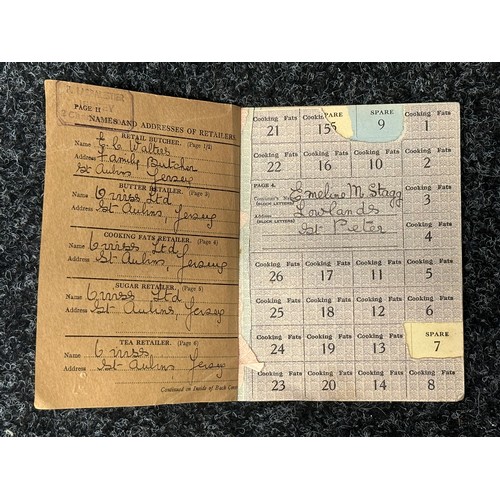 PAGE II
NAMES AND ADDRESSES OF RETAILERS
RETAIL BUTCHER. (Page 1/2)
Name E. C Walter
Address Family Butcher
St Aubins, Jersey
BUTTER RETAILER. (Page 3)
Name Ltd
Address St Aubins, Jersey
COOKING FATS RETAILER. (Page 4)
Name Ltd
Address St Aubins, Jersey
SUGAR RETAILER. (Page 5)
Name Ltd
Address St Aubins, Jersey
TEA RETAILER. (Page 6)
Name
Address St Aubins, Jersey
Continued on Inside of Back Cover
Cooking Fats SPARE Cooking Fats
21 9 1
Cooking Fats Cooking Fats Cooking Fats Cooking Fats
22 16 10 2
PAGE 4.
Consumer's Name Emeline M. Stagg
(BLOCK LETTERS)
Address Lowlands
(BLOCK LETTERS)
St Peter
Cooking Fats
3
Cooking Fats
4
Cooking Fats Cooking Fats Cooking Fats Cooking Fats
26 17 11 5
Cooking Fats Cooking Fats Cooking Fats Cooking Fats
25 18 12 6
Cooking Fats Cooking Fats Cooking Fats SPARE
24 19 13 7
Cooking Fats Cooking Fats Cooking Fats Cooking Fats
23 20 14 8